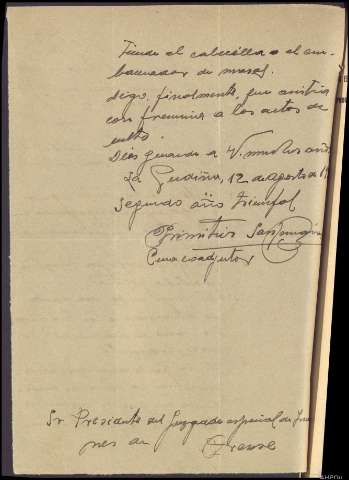 tiende el cabecilla o el em-
baucador de masas.
digo, finalmente, que asistia
con frecuencia a los actos de
culto.
Dios guarde a V. muchos años
La Gudiña, 12 de Agosto de 19
Segundo año triunfal
Primitivo
Cura coadjutor
Sr. Presidente del Juzgado especial de
nes de Orense